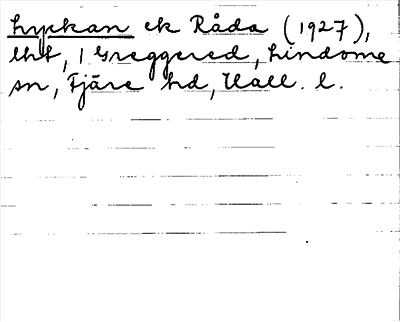 Lyckan ek Råda (1927),
lht, 1 Greggered, Lindome
sn, Fjäre hd, Hall. l.